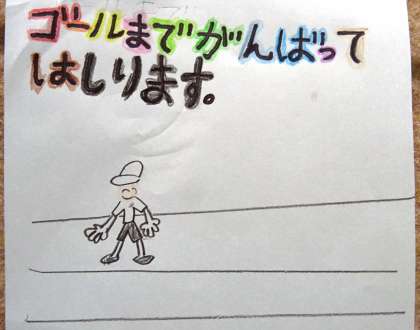 ゴールまでがんばって
はしります。